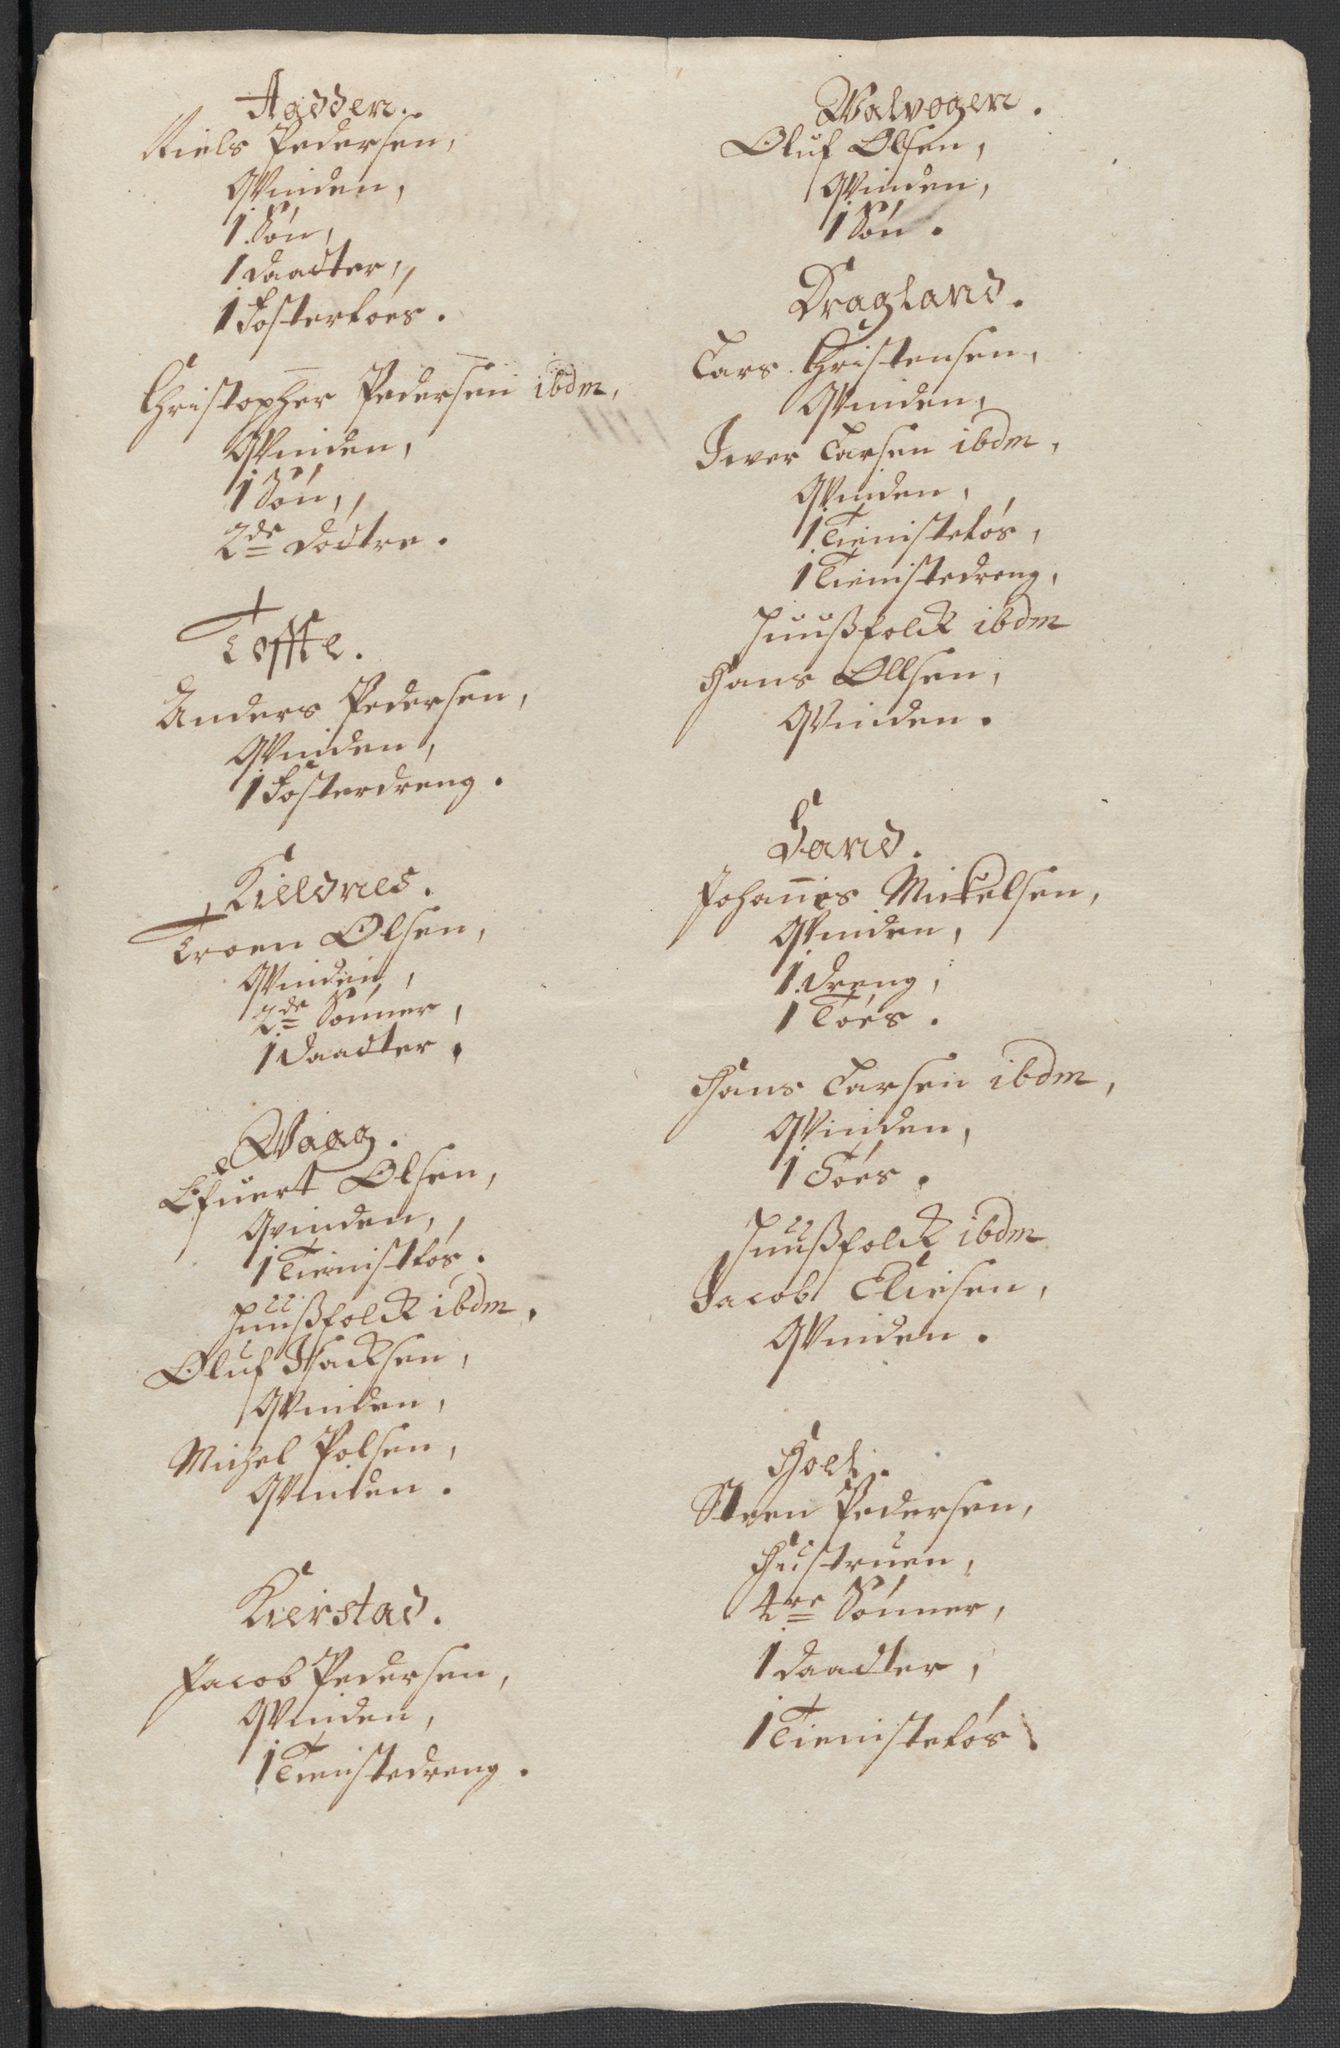 Aadden.
Niels Pedersen,
Qvinden,
1 Søn,
1 Daatter,
1 Fostertøes.
Christopher Pedersen ibdm,
Qvinden,
1 Søn,
2de Døttre.
Tøffte.
Anders Pedersen,
Qvinden,
1 Fosterdreng.
Kieldnes.
Troen Olsen,
Qvinden,
2de Sønner,
1 Daatter.
Waag.
Efuert Olsen,
Qvinden,
1 Tienisttøs.
Huußfolk ibdm,
Oluf Isacksen,
Qvinden,
Michel Polsen,
Qvinden.
Kierstad.
Jacob Pedersen,
Qvinden,
1 Tienistedreng.
Walvogen.
Oluf Olsen,
Qvinden,
1 Søn.
Dragland.
Lars Christensen,
Qvinden,
Iver Larsen ibdm,
Qvinden,
1 Tienistetøs,
1 Tienistedreng,
Huußfolk ibdm
Hans Ollsen,
Qvinden.
Sand.
Johannes Mickelsen,
Qvinden,
1 Dreng,
1 Tøes.
Hans Larsen ibdm,
Qvinden,
1 Tøes.
Huußfolk ibdm
Jacob Eliesen,
Qvinden.
Holl.
Steen Pedersen,
Hustruen,
4re Sønner,
1 Daatter,
1 Tienistetøs.